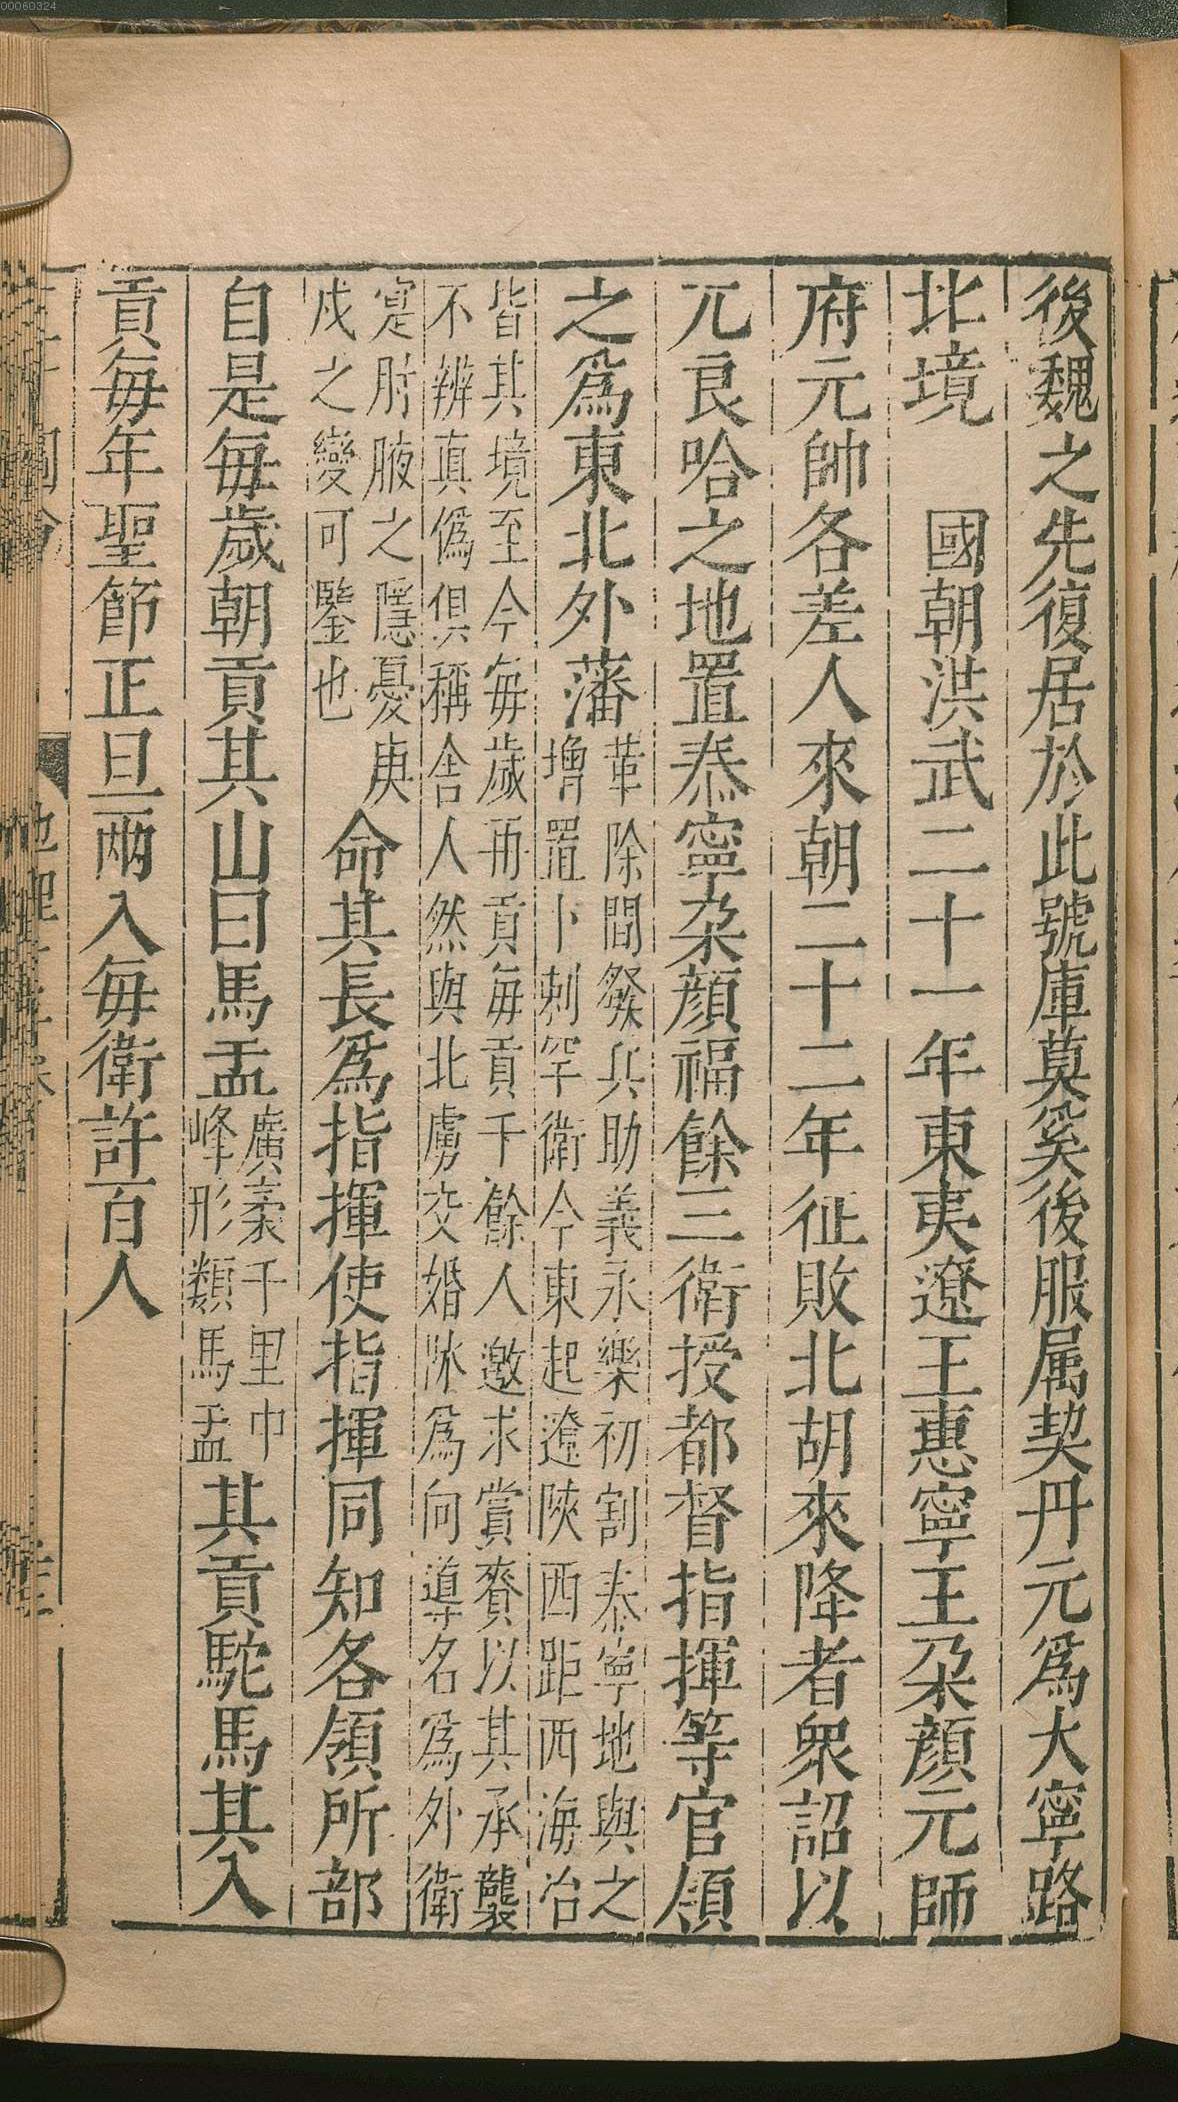 00060324
後魏之先復居於此號庫莫奚後服属契丹元為大寧路
北境　國朝洪武二十一年東夷遼王惠寧王朶顔元師
府元帥各差人來朝二十二年征敗北胡來降者衆詔以
兀良哈之地置泰寧朶顔福餘三衛授都督指揮等官領
之為東北外藩
革除間發兵助義永樂初割泰寧地與之
增置卜剌罕衛今東起遼陝西距西海冶
皆其境至今每歲再貢每貢千餘人邀求賞賚以其承襲
不辨真偽俱稱舍人然與北虜交婚牀為向導名為外衛
寔肘腋之隱憂庚
戍之變可鑒也
命其長為指揮使指揮同知各領所部
自是每歲朝貢其山曰馬盂
廣袤千里巾
峰形類馬盂
其貢駝馬其入
貢每年聖節正旦兩入每衛許百人